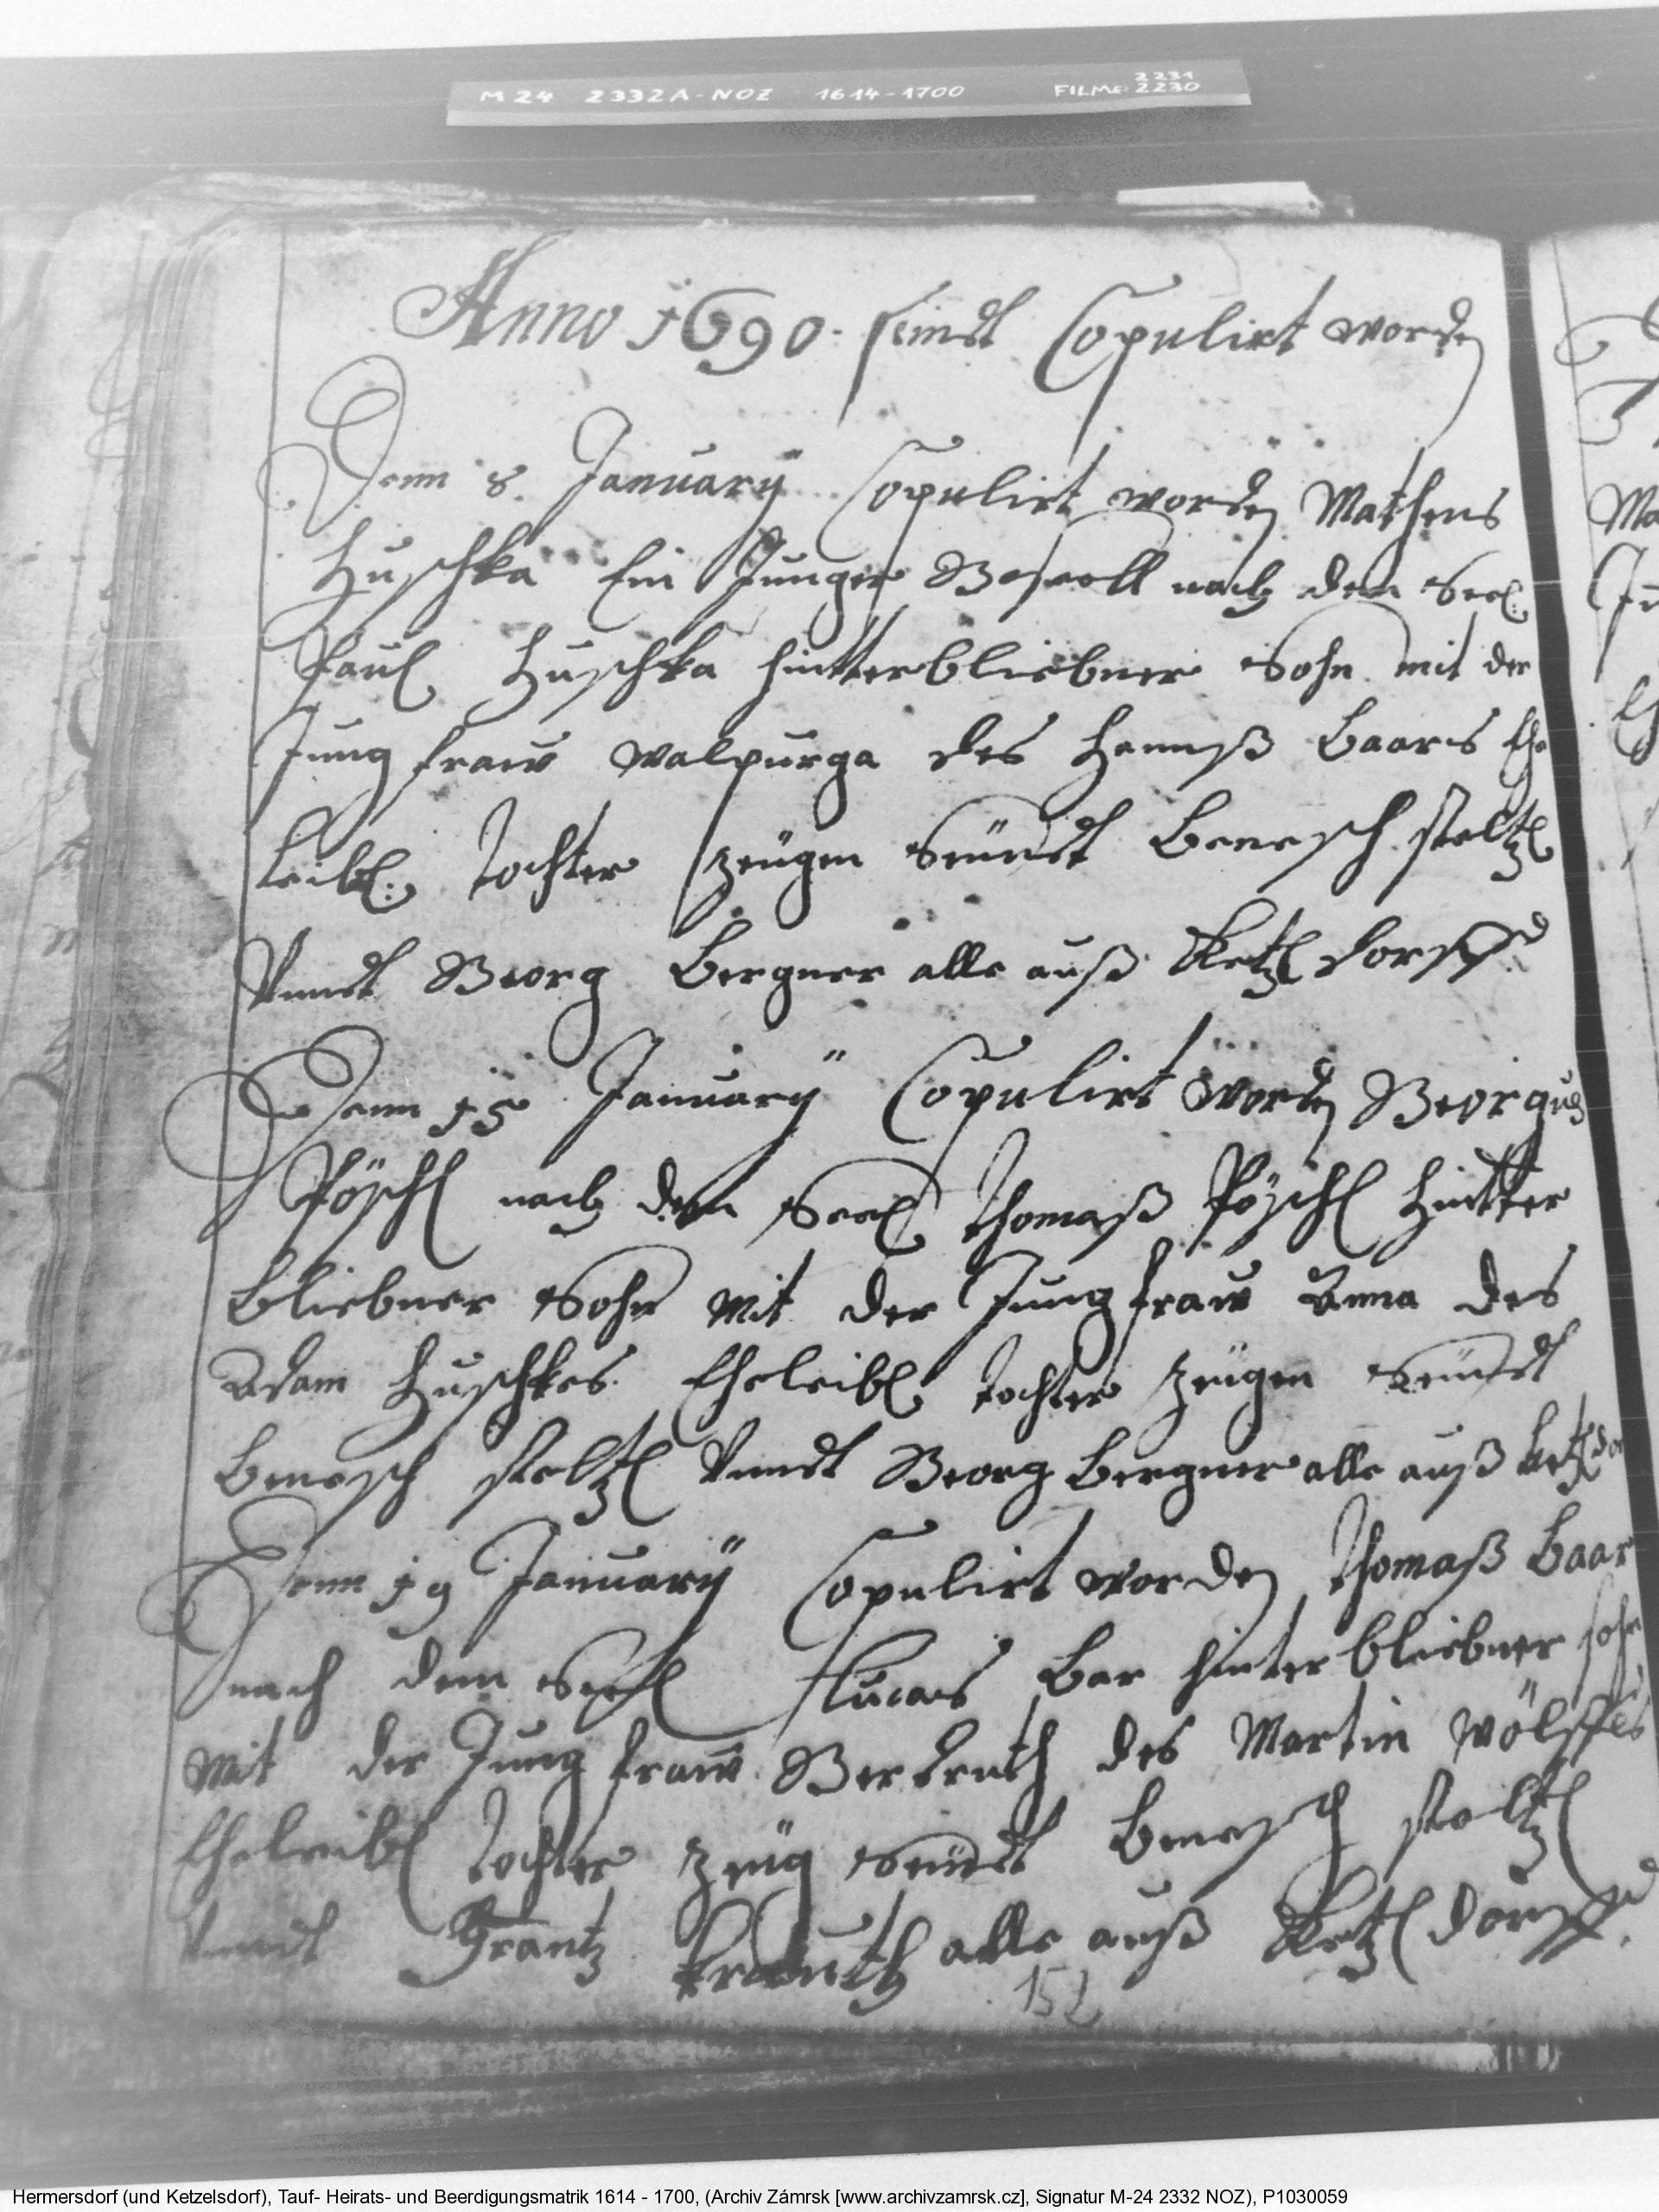 M 24 2332A-NOZ 1614-1700 FILME: 2231 2230
Anno 1690. seindt Copulirt worden
Denn 8. January Copulirt worden Matheus
Huschka Ein Junger Geseell nach den Seel.
Paul Huschka hintterbliebner Sohn mit der
Jungfraw Walpurga des Hannß Baars Ehe
leibl. Tochter Zeügen Seündt Benesch Steltzl
Unndt Georg Bergner alle auß Ketzldorff
Denn 15 January Copulirt worden Georgus
Pöschl nach den Seel Thomaß Pöschl Hintter
Bliebner Sohn mit der Jungfraw Anna des
Adam Huschkes Eheleibl Tochter Zeügen Seündt
Benesch Steltzl Unndt Georg Bergner alle auß Ketzldor
Denn 19 January Copulirt worden Thomaß Baar
nach dem Seel Lucas Bar hinterbliebner sohn
Mit der Jungfraw Gerdruth des Martin Wölffes
Eheleibl Tochter Zeüg Seündt Benesch Steltzl
Unndt Frantz alle auß Ketzldorff
152
Hermersdorf (und Ketzelsdorf), Tauf- Heirats- und Beerdigungsmatrik 1614 - 1700, (Archiv Zámrsk [www.archivzamrsk.cz], Signatur M-24 2332 NOZ), P1030059